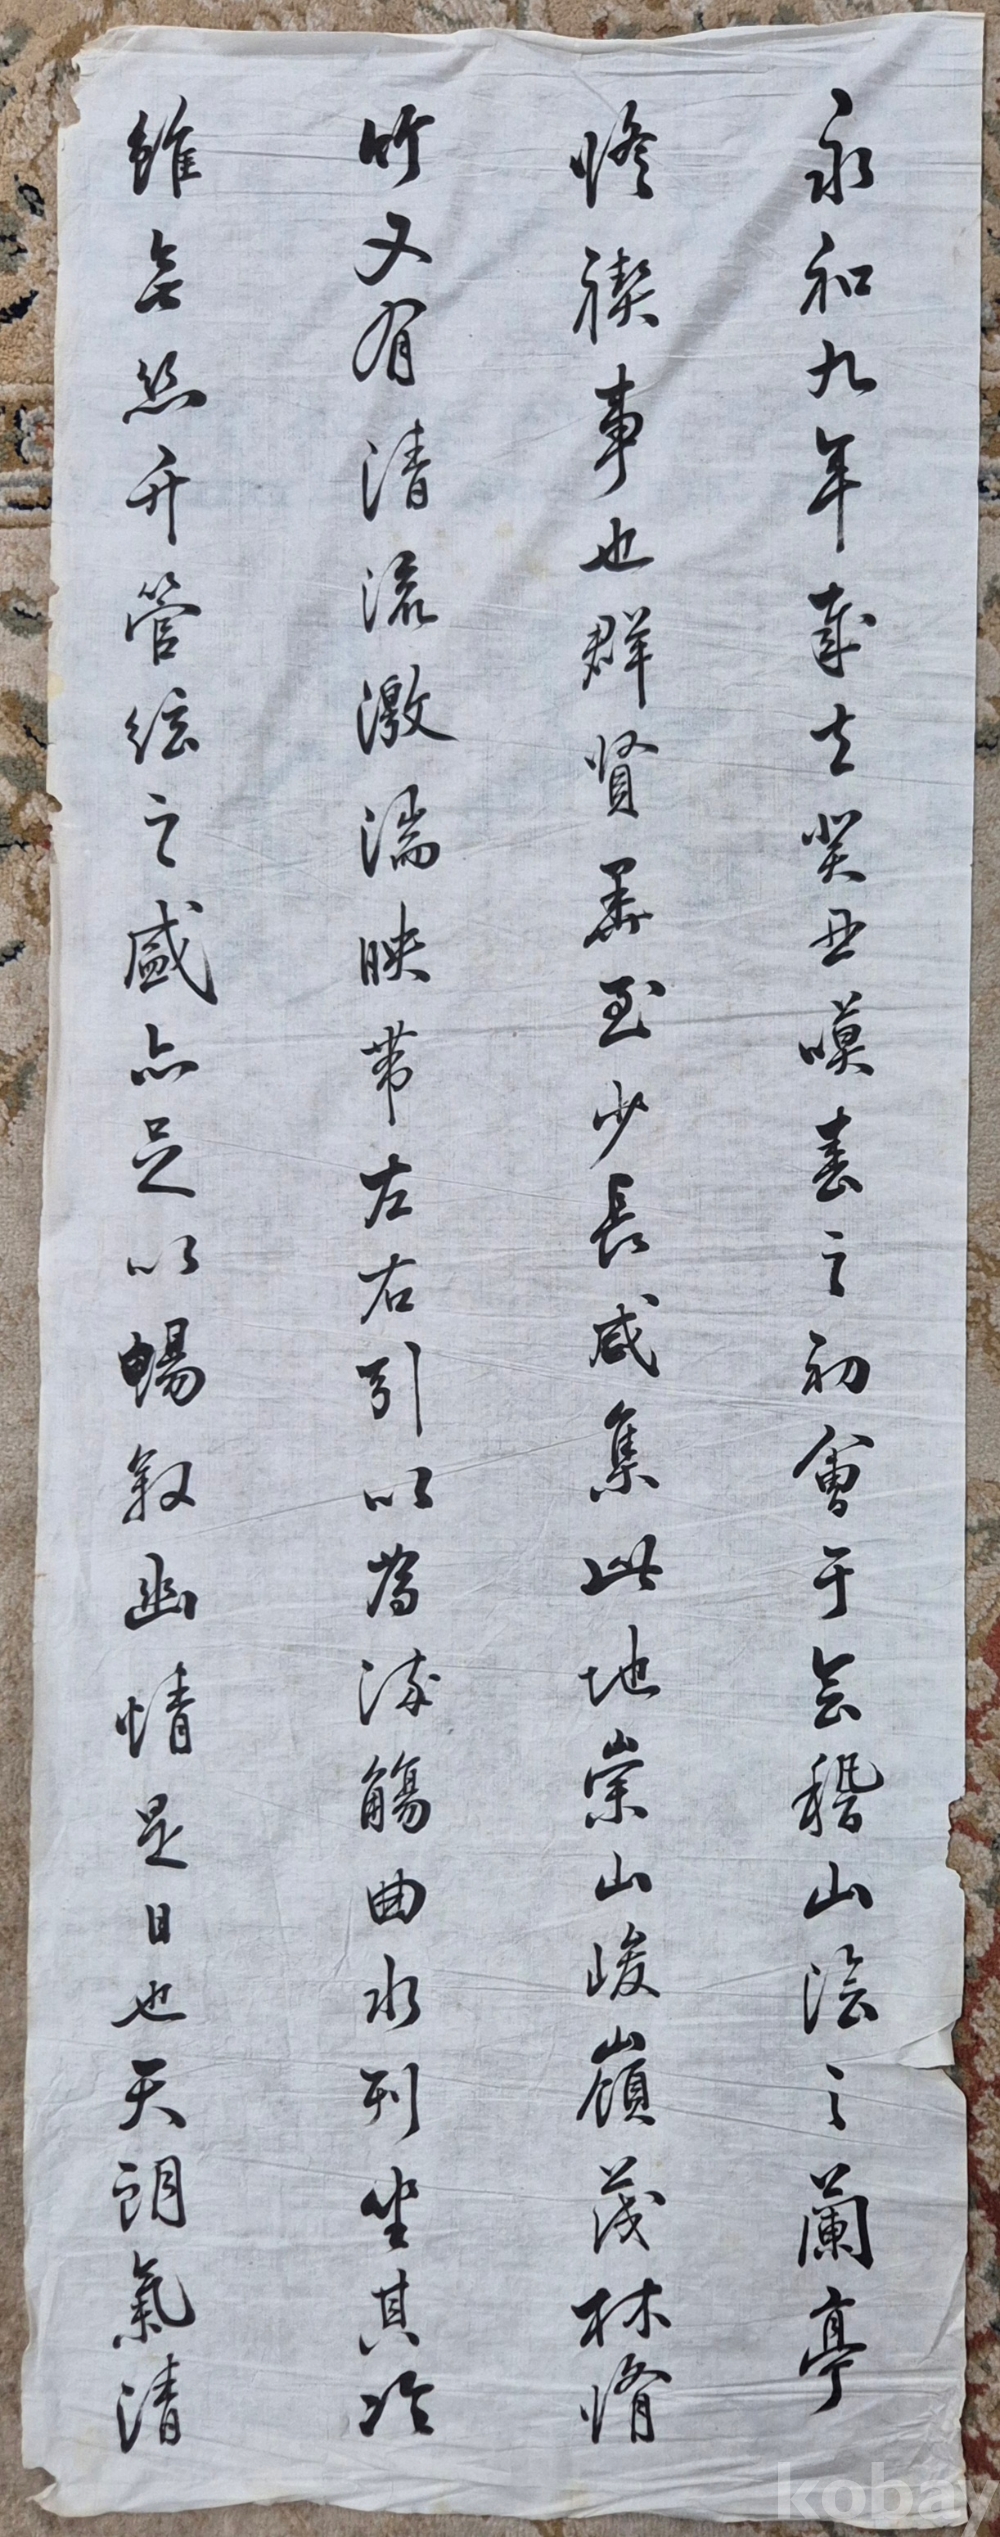 永和九年歲在癸丑暮春之初會于會稽山陰之蘭亭
脩禊事也群賢畢至少長咸集此地崇山峻嶺茂林脩
竹又有清流激湍映帶左右引以為流觴曲水列坐其次
雖無絲竹管弦之盛亦足以暢叙幽情是日也天朗氣清
kobay